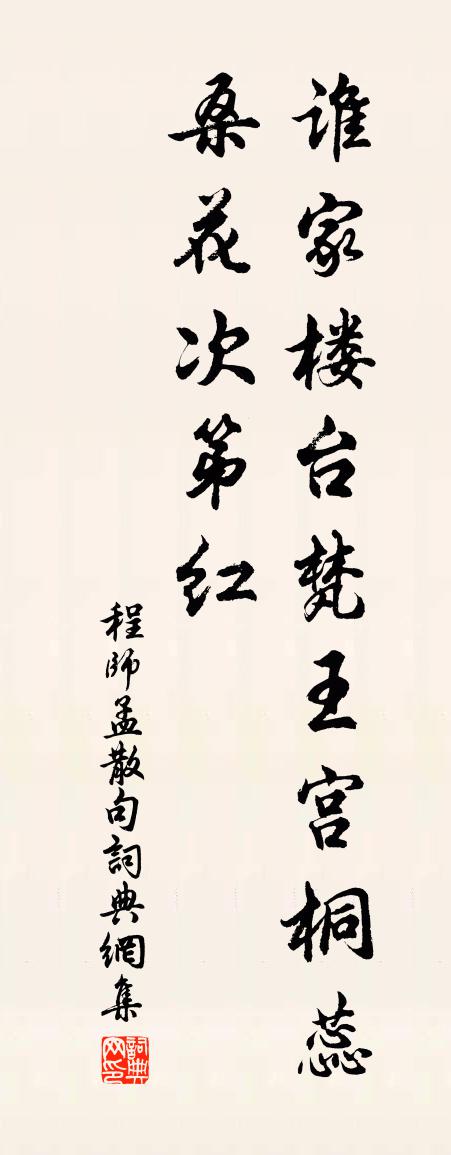 谁家楼台梵王宫桐蕊
桑花次第红
程師孟散句詞典網集
詞典网印